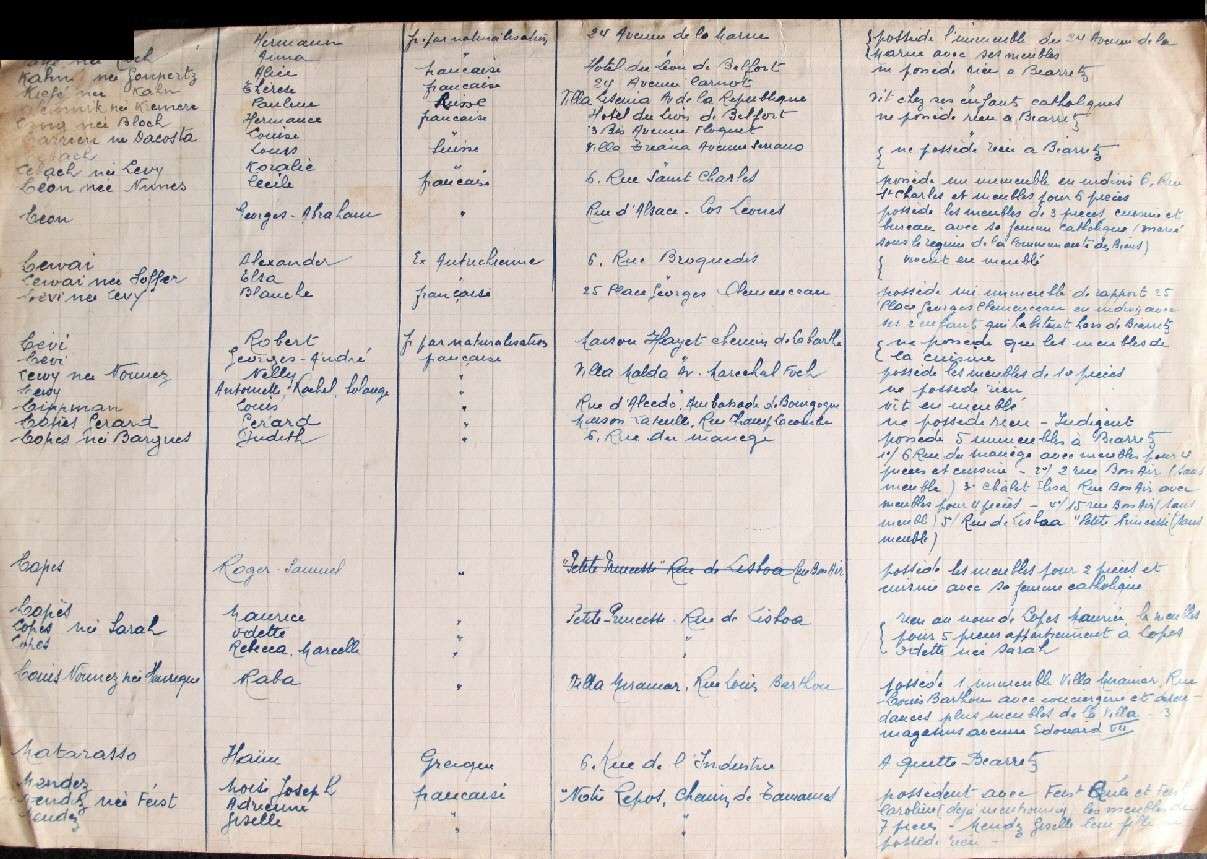 Hermann fr par naturalisation 24 Avenue de la Marne { possède l'immeuble du 24 Avenue de la
née Anna " Marne avec ses meubles
Kahn née Gompertz Alice française Hotel du Léon de Belfort ne possède rien à Biarritz
née Kahn Thérèse française 24 Avenue Carnot vit chez ses enfants catholiques
née Pauline Suisse Villa Av de la République
née Bloch Hermance française Hotel du Lion de Belfort ne possède rien à Biarritz
née Dacosta Louise " 3 Bis Avenue Floquet "
Louis Suisse Villa Triana Avenue Serrano { ne possède rien à Biarritz
née Levy Koralie "
Léon née Nunes Cécile française 6. Rue Saint Charles possède un immeuble en indivis 6. Rue
St Charles et meubles pour 6 pièces
Léon Georges-Abraham " Rue d'Alsace. Cos Leones possède les meubles de 3 pieces, cuisine et
bureau avec sa femme catholique (marié
sous le régime de la Communauté des Biens)
Lewai Alexander Ex Autrichienne 6. Rue Broquedis { vivent en meublé
Lewai née Soffer Elsa "
Lévi née Levy Blanche française 25 Place Georges Clemenceau possède un immeuble de rapport 25
Place Georges Clemenceau en indivis avec
ses 2 enfants qui habitent hors de Biarritz
Lévi Robert fr par naturalisation Maison Hayet chemin de Labarthe { ne possède que les meubles de
Lévi Georges-André française " la cuisine
Lewy née Nounez Nelly " Villa Malda Av. Marechal Foch possède les meubles de 10 pièces
Lewy Antoinette, Rachel, Solange " " ne possède rien
Lippman Louis " Rue d'Alcedo, Ambassade de Bourgogne vit en meublé
Lopès Gérard Gérard " Maison Rue Champ Lacombe ne possède rien - Indigent
Lopes née Bargues Judith " 6. Rue du manège possède 5 immeubles à Biarritz
1°/ 6 Rue du manège avec meubles pour
pièces et cuisine - 2°/ 2 rue Bon Air (sans
meuble) 3° Châlet Elisa Rue Bon Air avec
meubles pour 4 pièces - 4°/ 15 rue Bon Air (sans
meuble) 5/ Rue de Lisboa "Petite Princesse" (sans
meuble)
Lopès Roger-Samuel " "Petite Princesse" Rue de Lisboa Rue Bon Air possède les meubles pour 2 pièces et
cuisine avec sa femme catholique
Lopès Maurice " Petite-Princesse. Rue de Lisboa { rien au nom de Lopes Maurice, les meubles
Lopes née Sarah Odette " " pour 5 pièces appartiennent à Lopes
Lopes Rebecca, Marcelle " " Odette née Sarah
Louis Nounez née Raba " Villa Miramar, Rue Louis Barthou possède 1 immeuble Villa Miramar, Rue
Louis Barthou avec conciergerie et
dances plus meubles de la Villa - 3
magasins avenue Edouard VII
Matarasso Haïm Grecque 6. Rue de l'Industrie A quitté Biarritz
Mendez Moïse Joseph française "Notre Repos, Chemin de possèdent avec Feist et Feist
Mendez née Feist Adrienne " " Caroline (déjà mentionnées) les meubles de
Mendez Giselle " " 7 pièces - Mendez Giselle leur fille ne
possède rien -